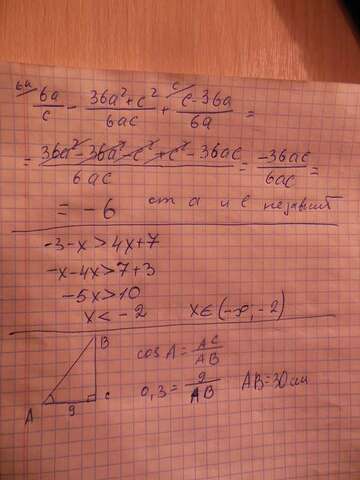 6a/ 6a/c - 36a²+c²/6ac + c/ c-36a/6a =
= 36a²-36a²-c²+c²-36ac/6ac = -36ac/6ac =
= -6 от a и c независит
-3-x>4x+7
-x-4x>7+3
-5x>10
x<-2 x∈(-∞,-2)
B
cosA = AC/AB
0,3 = 9/AB AB=30см
A 9 c